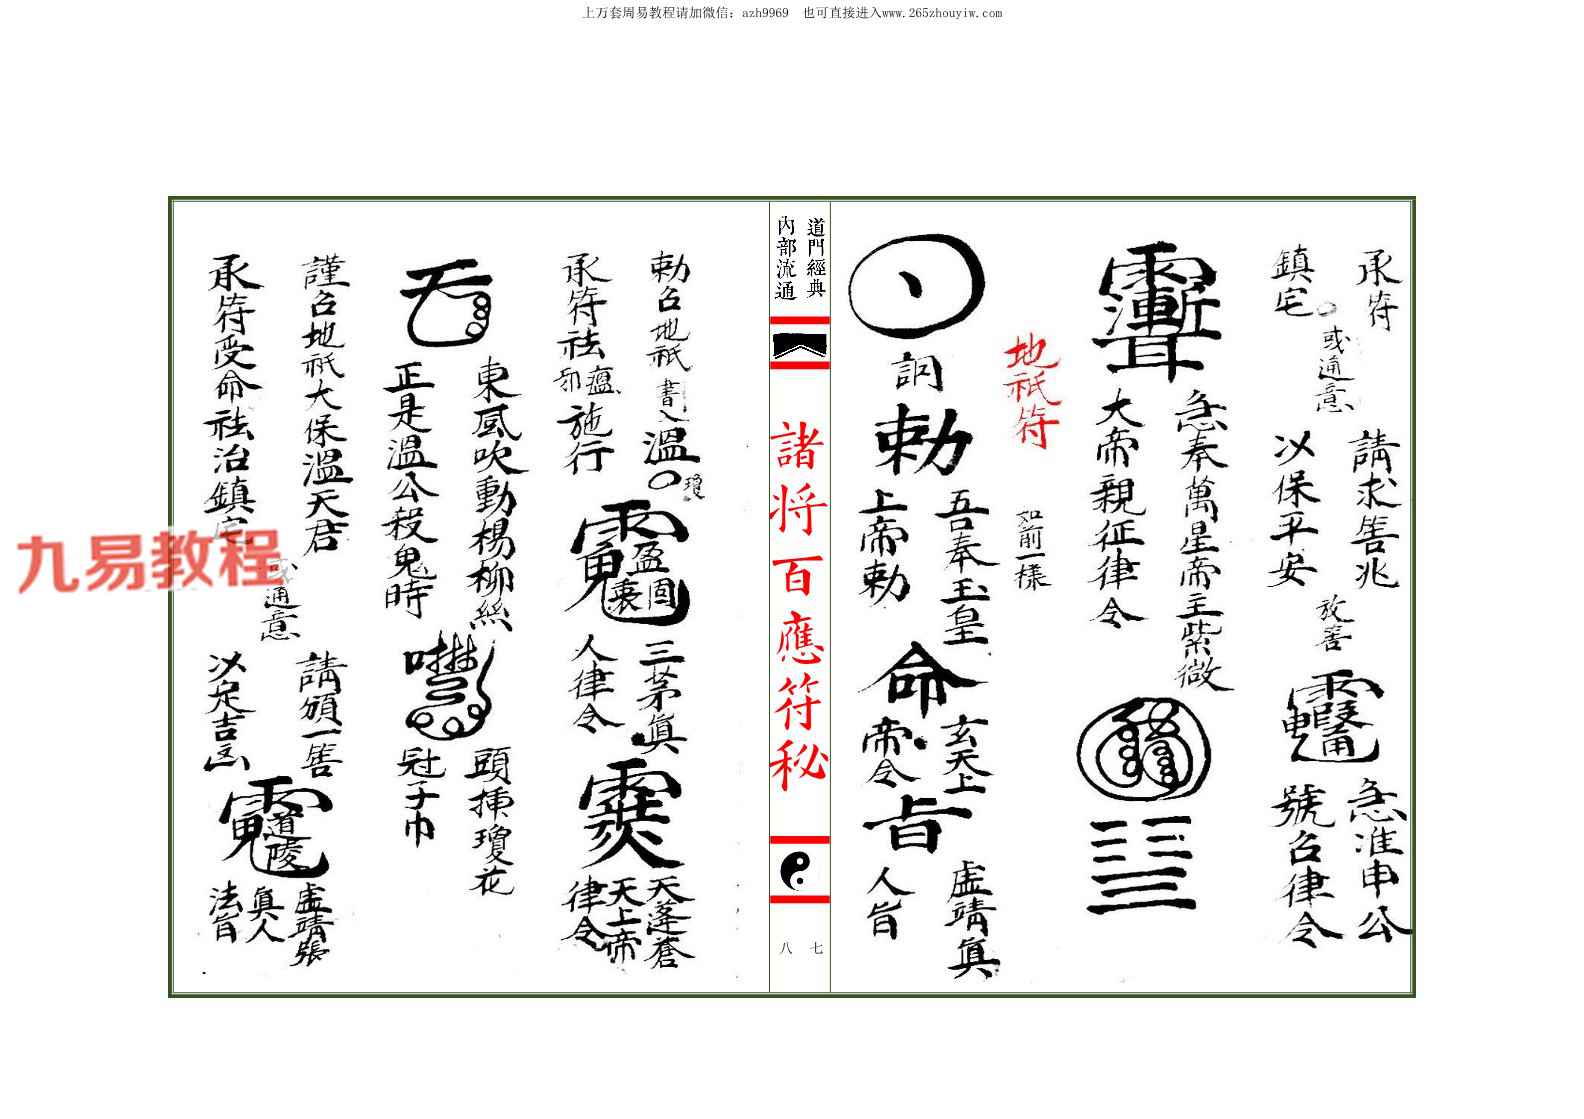 上万套周易教程请加微信：azh9969 也可直接进入www.265zhouyiw.com
承符
鎮宅
○或通意
請求筶兆
以保平安
放筶
急准申公
號召律令
急奉萬星帝主紫微
大帝親征律令
地祇符
如前一樣
詞
勅
五吉奉玉皇
上帝勅
命
玄天上
帝令
旨
虛靖眞
人旨
道門經典
內部流通
諸将百應符秘
七
八
勅召地祇書入溫○瓊
承符祛瘟
施行
三茅眞
人律令
天蓬蒼
天上帝
律令
東風吹動楊柳絲
正是溫公殺鬼時
頭插瓊花
冠子巾
謹召地祇大保溫天君
承符受命祛治鎮宅
或通意
請頒一筶
以定吉凶
道陵
虛靖張
眞人
法旨
九易教程